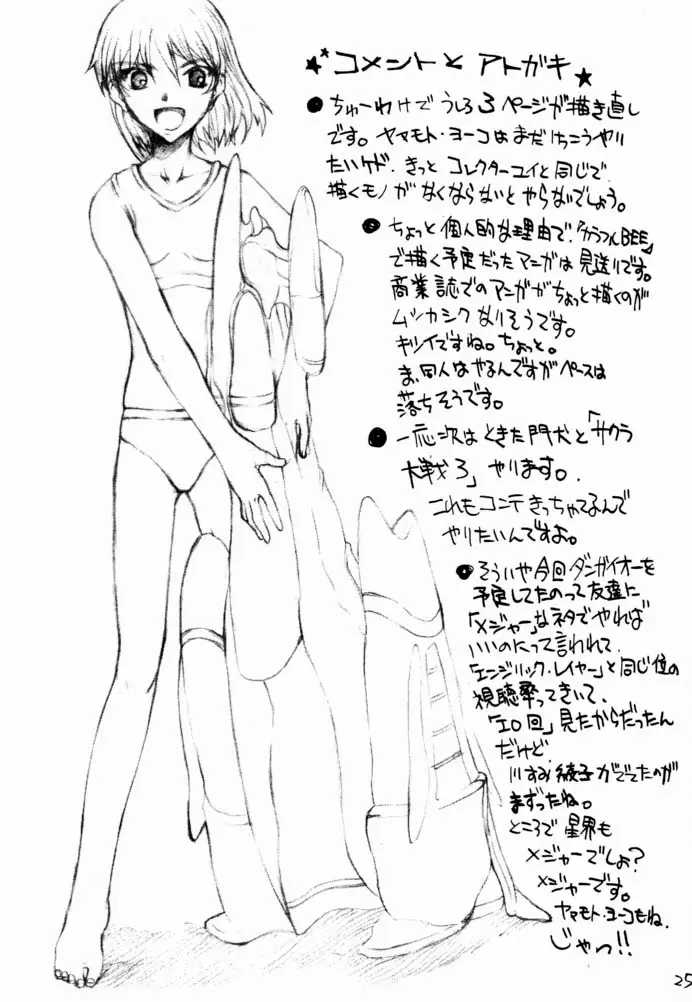 コメントと アトガキ
●ちゅーわけで うしろ3ページが描き直し
です。ヤマモト・ヨーコはまだけっこうやり
たいケド、きっと コレクターユイと同じで、
描くモノが なくならないとやらないでしょう。
●ちょっと個人的な理由で、「カラフルBEE」
で描く予定だったマンガは見送りです。
商業誌でのマンガがちょっと描くのが
ムツカシク なりそうです。
キツイですね。ちょっと。
ま、同人はやるんですがペースは
落ちそうです。
●一応次はときた門犬と「サクラ
大戦3」やります。
これもコンテきっちゃてるんで
やりたいんですよ。
●そういや今回ダンガイオーを
予定してたのって友達に
「メジャー」なネタでやれば
いいのにって言われて、
「エンジェリック・レイヤー」と同じ位の
視聴率ってきいて、
「エロ回」見たからだったん
だけど、
川すみ綾子がでてたのが
まずったね。
ところで 星界も
メジャーでしょ?
メジャーです。
ヤマモト・ヨーコもね。
じゃっ!!
25